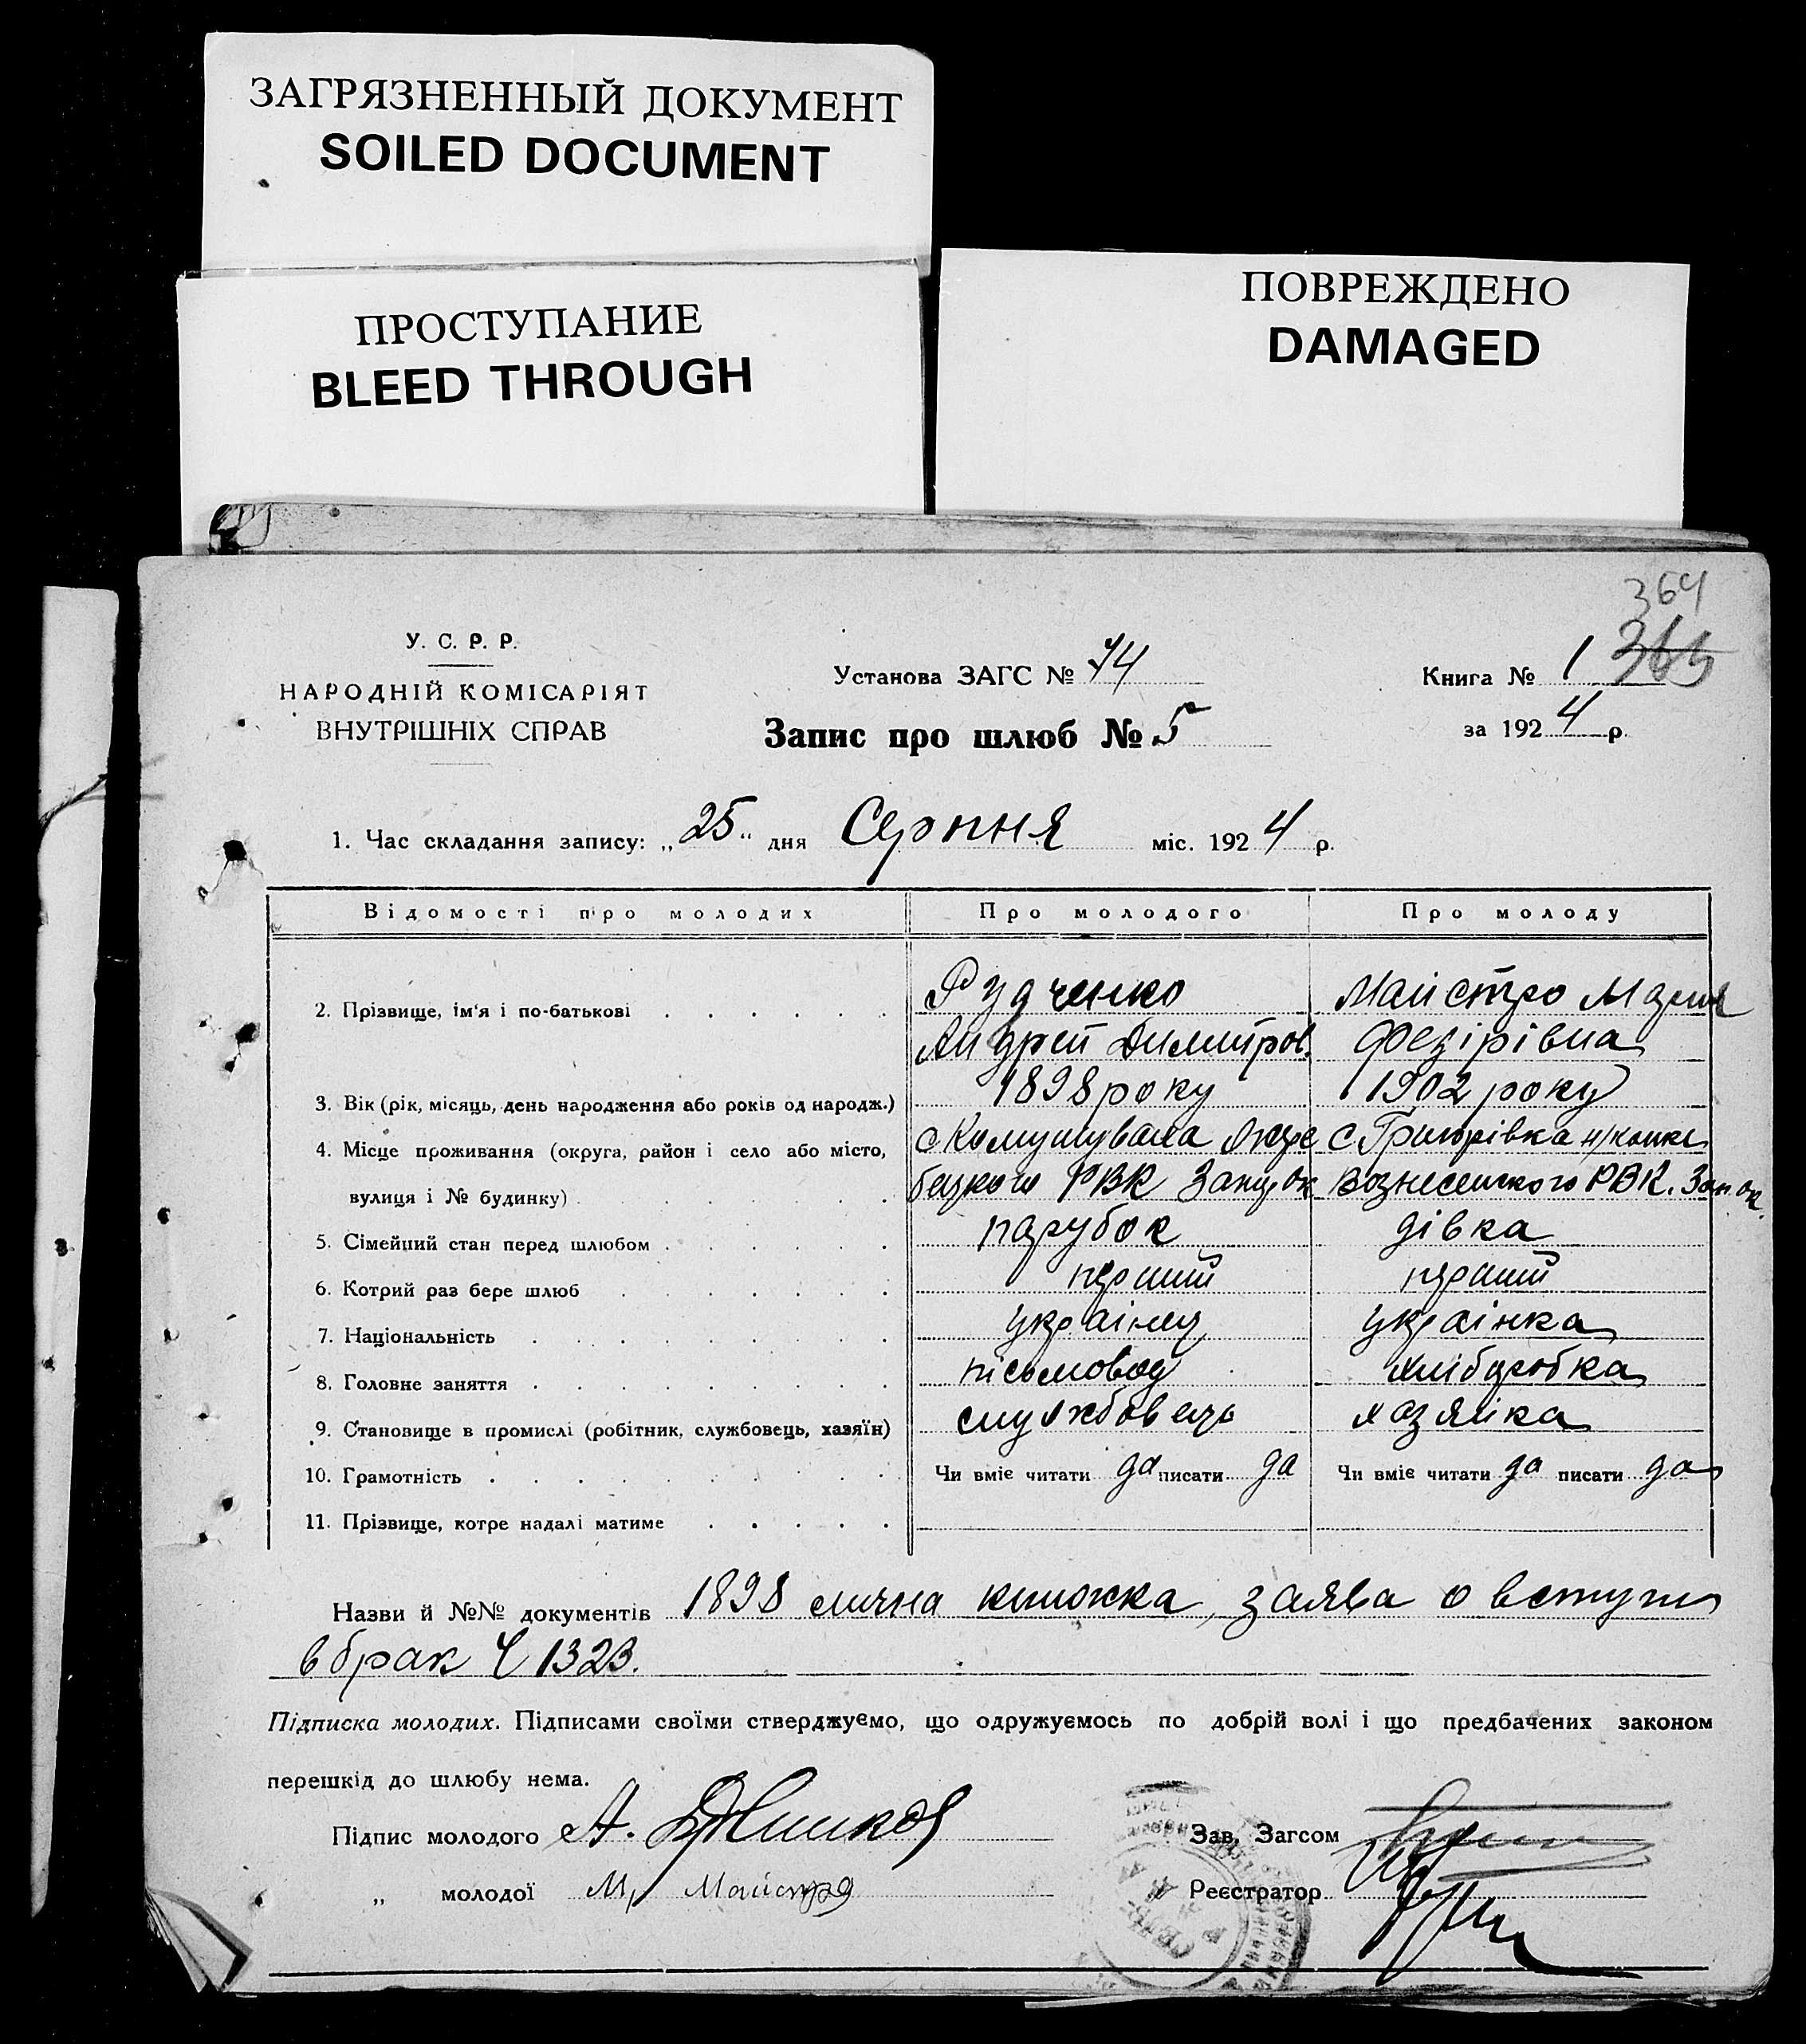 ЗАГРЯЗНЕННЫЙ ДОКУМЕНТ
SOILED DOCUMENT
ПРОСТУПАНИЕ
BLEED THROUGH
ПОВРЕЖДЕНО
DAMAGED
364
У. С. Р. Р.
НАРОДНІЙ КОМІСАРІЯТ
ВНУТРІШНІХ СПРАВ
Установа ЗАГС № 74
Запис про шлюб № 5
Книга № 1
за 1924 р.
1. Час складання запису: „25" дня Серпня міс. 1924 р.
Відомості про молодих Про молодого Про молоду
2. Прізвище, ім'я і по-батькові Рудченко Майстро Мария
Андрей Димитров. Федірівна
3. Вік (рік, місяць, день народження або років од народж.) 1898 року 1902 року
4. Місце проживання (округа, район і село або місто, с Комушувала Жере с. Григорівка н/конке
вулиця і № будинку) бецкого РВК Запор ок Вознесенского РВК. Зап. ок.
5. Сімейний стан перед шлюбом парубок дівка
6. Котрий раз бере шлюб перший перший
7. Національність українец українка
8. Головне заняття пісьмовод хліборобка
9. Становище в промислі (робітник, службовець, хазяїн) службовець хозяйка
10. Грамотність Чи вміє читати да писати да Чи вміє читати да писати да
11. Прізвище, котре надалі матиме
Назви й №№ документів 1898 лична книжка, заява о вступи
в брак Ч 1323.
Підписка молодих. Підписами своїми стверджуємо, що одружуємось по добрій волі і що предбачених законом
перешкід до шлюбу нема.
Підпис молодого А.
Зав. Загсом
„ молодої М. Майстро
Реєстратор